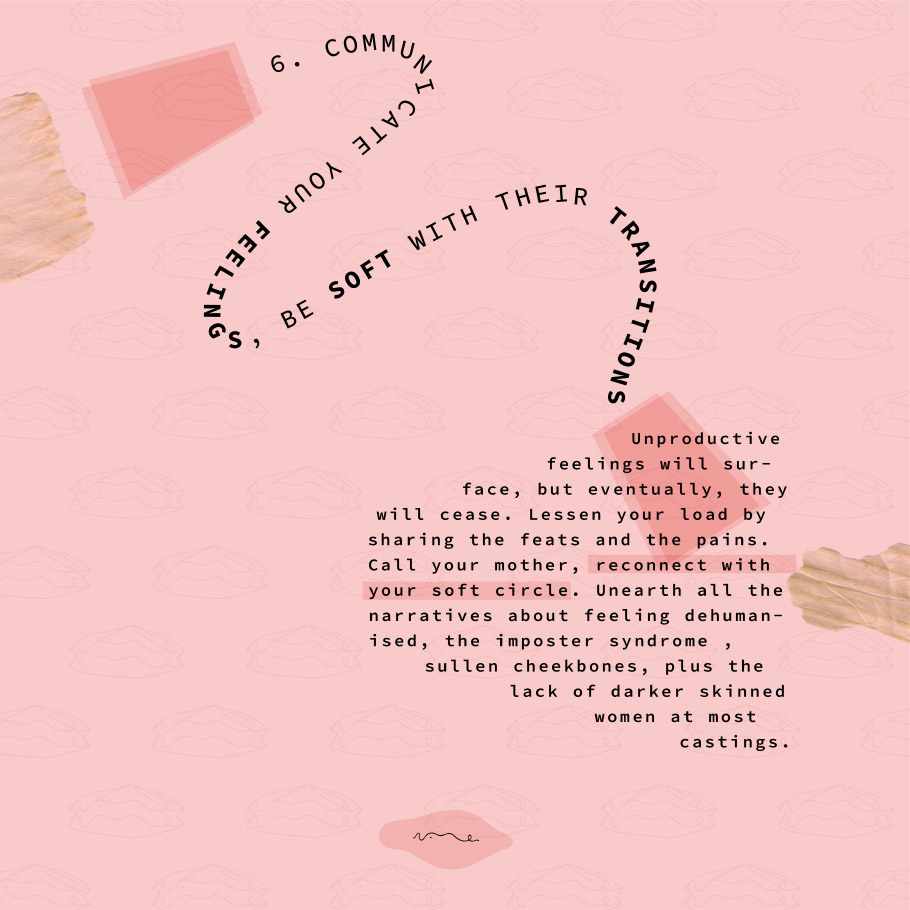 6. COMMUNICATE YOUR FEELINGS, BE SOFT WITH THEIR TRANSITIONS
Unproductive
feelings will sur-
face, but eventually, they
will cease. Lessen your load by
sharing the feats and the pains.
Call your mother, reconnect with
your soft circle. Unearth all the
narratives about feeling dehuman-
ised, the imposter syndrome ,
sullen cheekbones, plus the
lack of darker skinned
women at most
castings.